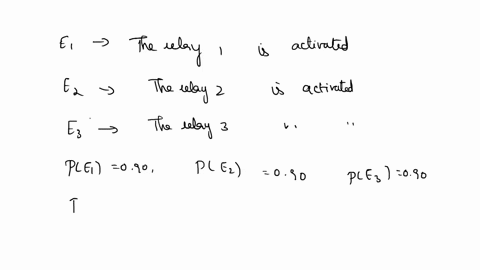 E₁ → The relay 1 is activated
E₂ → The relay 2 is activated
E₃ → The relay 3 " "
P(E₁) = 0.90, P(E₂) = 0.90 P(E₃) = 0.90
I